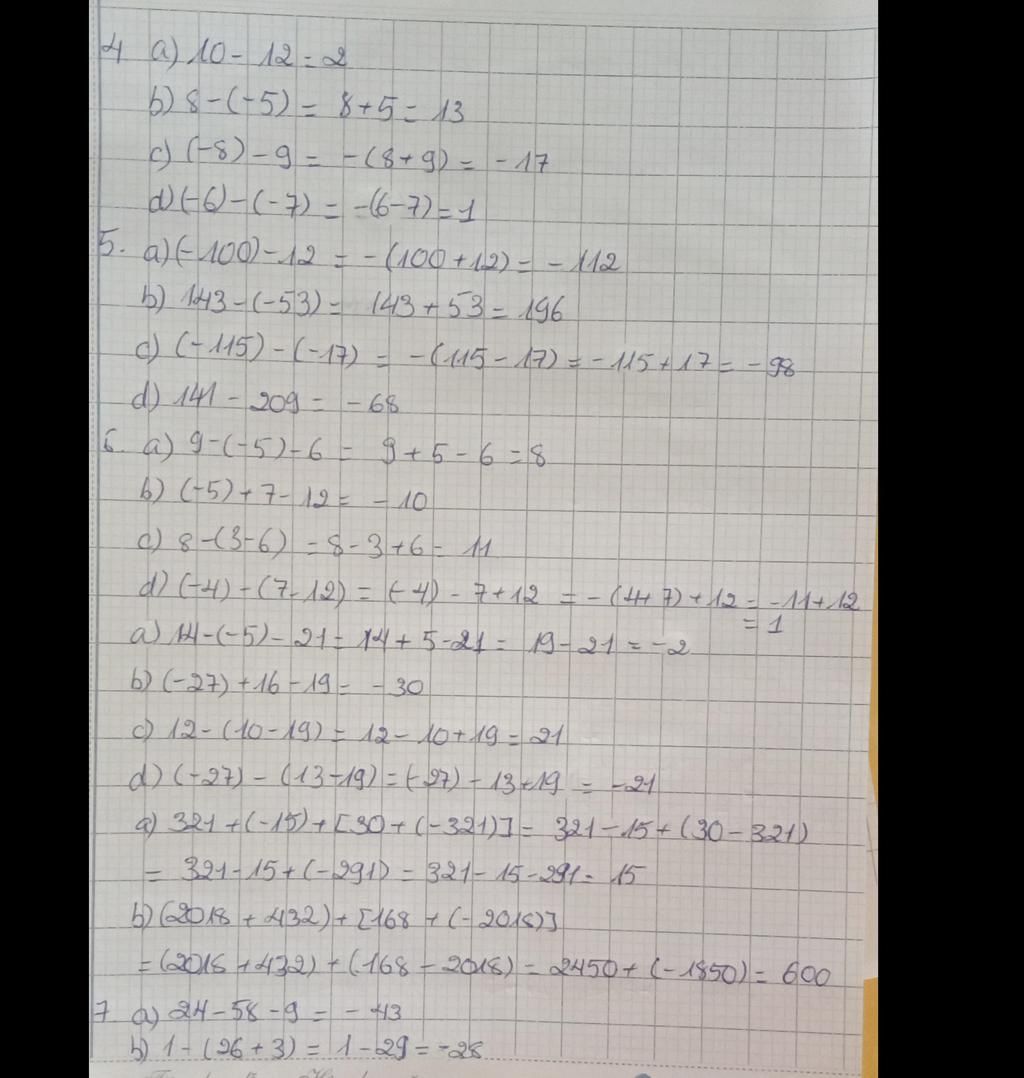 4 a) 10 - 12 = 2
b) 8 - (-5) = 8 + 5 = 13
c) (-8) - 9 = -(8 + 9) = -17
d) (-6) - (-7) = -(6-7) = 1
5. a) (-100) - 12 = -(100 + 12) = -112
b) 143 - (-53) = 143 + 53 = 196
c) (-115) - (-17) = -(115 - 17) = -115 + 17 = -98
d) 141 - 209 = -68
6. a) 9 - (-5) - 6 = 9 + 5 - 6 = 8
b) (-5) + 7 - 12 = -10
c) 8 - (3-6) = 8 - 3 + 6 = 11
d) (-4) - (7-12) = (-4) - 7 + 12 = -(4+7) + 12 = -11 + 12
= 1
a) 14 - (-5) - 21 = 14 + 5 - 21 = 19 - 21 = -2
b) (-27) + 16 - 19 = -30
c) 12 - (10 - 19) = 12 - 10 + 19 = 21
d) (-27) - (13 - 19) = (-27) - 13 + 19 = -21
a) 321 + (-15) + [30 + (-321)] = 321 - 15 + (30 - 321)
= 321 - 15 + (-291) = 321 - 15 - 291 = 15
b) (2018 + 432) + [168 + (-2018)]
= (2018 + 432) + (168 - 2018) = 2450 + (-1850) = 600
7 a) 24 - 58 - 9 = -43
b) 1 - (26 + 3) = 1 - 29 = -28